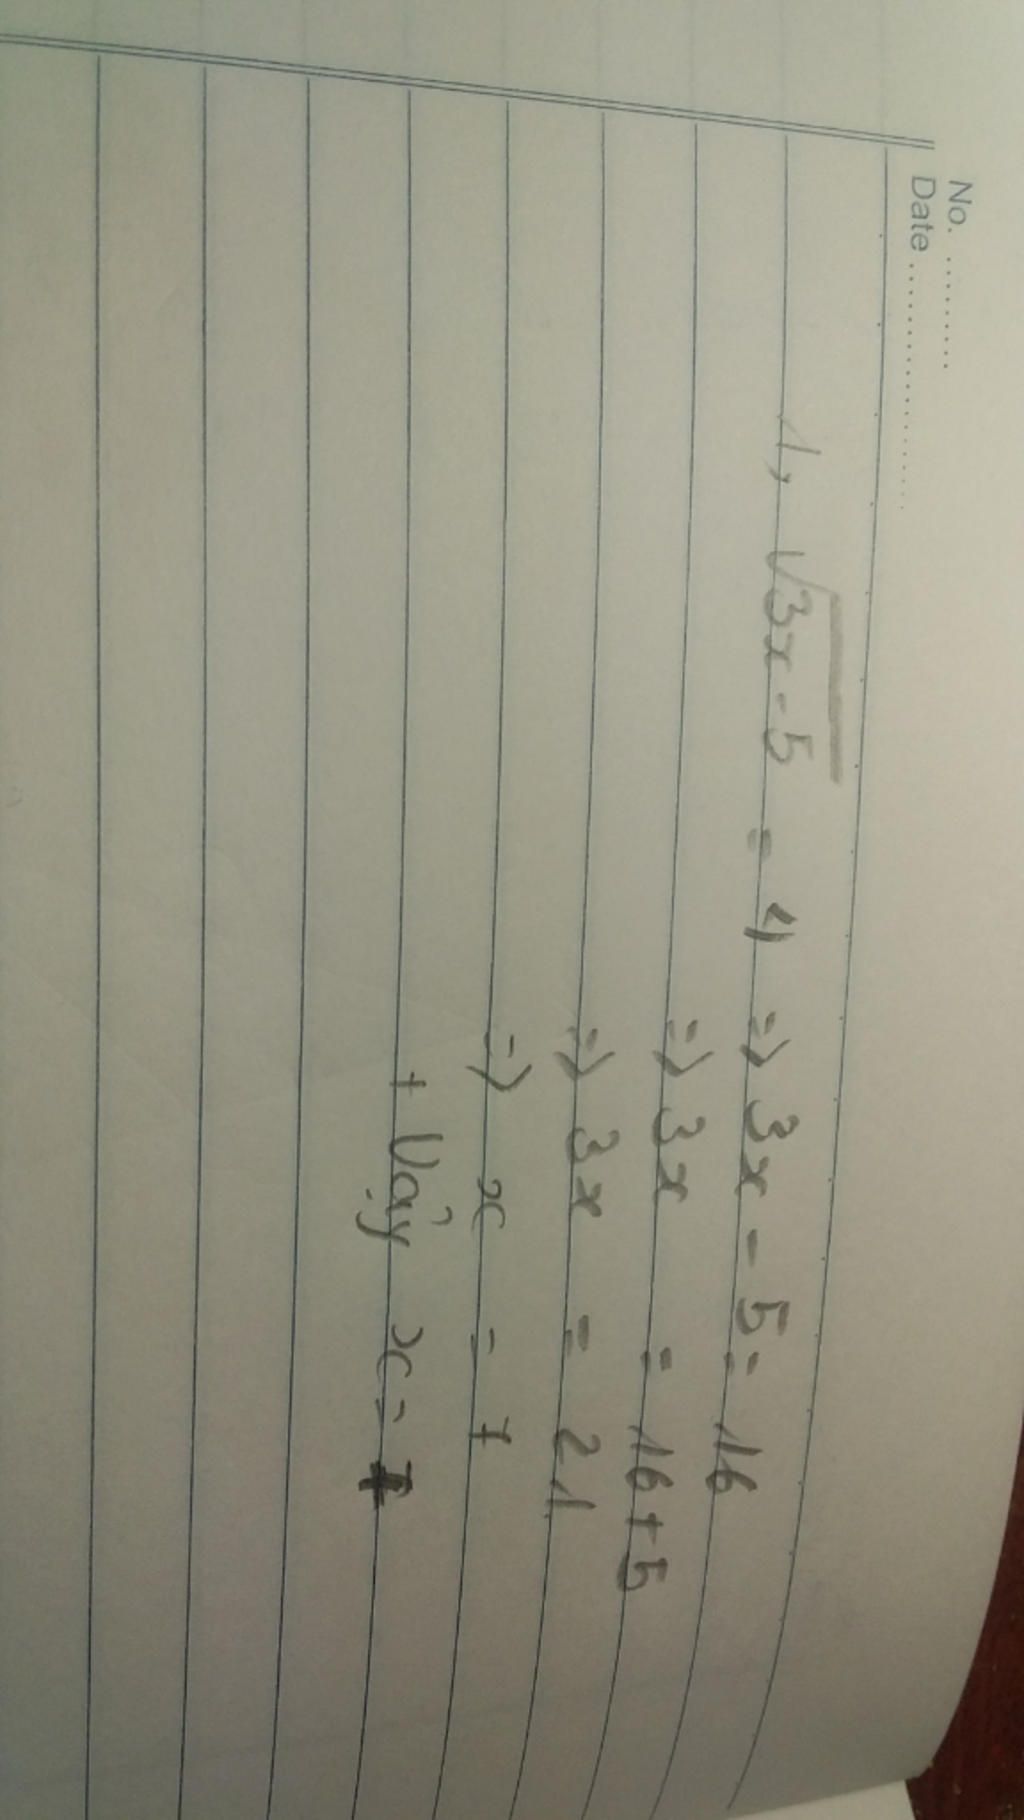 No. ..........
Date .....................
1, √3x - 5 = 4 => 3x - 5 = 16
=> 3x = 16 + 5
=> 3x = 21
=> x = 7
+ Vậy x = 7